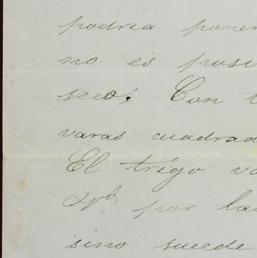 podria poner
no es posi
seco. Con
varas cuadrad
El trigo va
por la
sino sucede